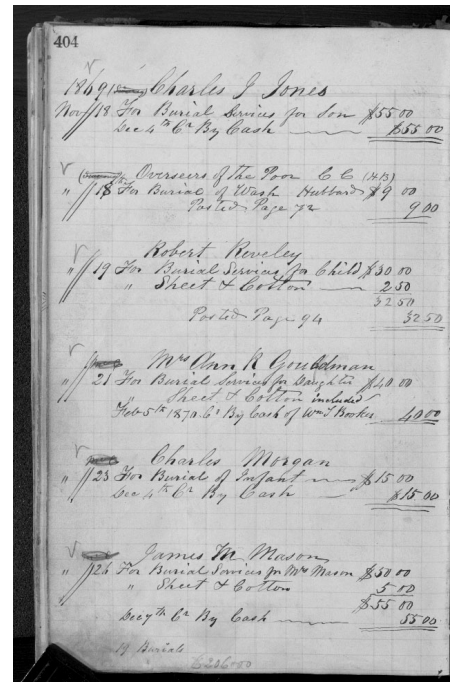 404
1869 Charles J Jones
Nov 18 For Burial Services for Son $55 00
Dec 4th Cr By Cash $55 00
Overseers of the Poor C C (H.B)
" 18 For Burial of Wash Hubbard $9 00
Posted Page 72 9 00
Robert Reveley
" 19 For Burial Services for Child $30 00
" Sheet & Cotton 2 50
32 50
Posted Page 94 32 50
Mrs Ann R Gouldman
" 21 For Burial Services for Daughter $40 00
" Sheet & Cotton included
Feb 5th 1870 Cr By Cash of Wm T Booker 40 00
Charles Morgan
" 23 For Burial of Infant $15 00
Dec 4th Cr By Cash $15 00
James M Mason
" 24 For Burial Services for Mrs Mason $50 00
" Sheet & Cotton 5 00
$55 00
Dec 7th Cr By Cash 55 00
19 Burials